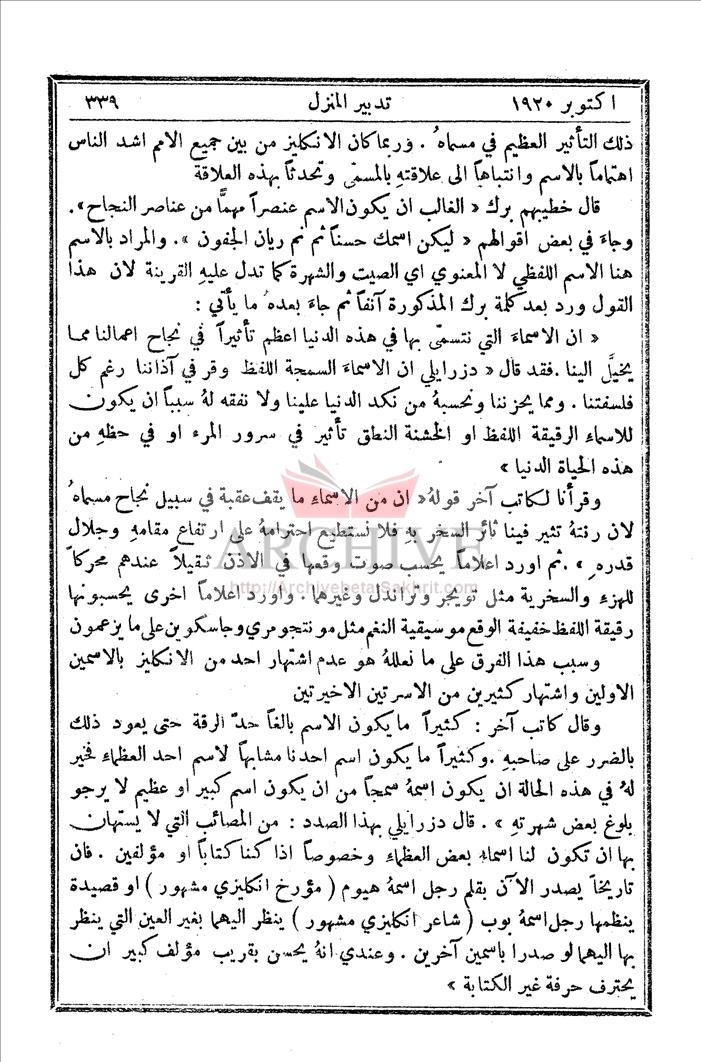 اكتوبر ١٩٢٠ تدبير المنزل ٣٣٩
ذلك التأثير العظيم في مسماهُ . وربما كان الانكليز من بين جميع الامم اشد الناس
اهتماماً بالاسم وانتباهاً الى علاقتهِ بالمسمّى وتحدثاً بهذه العلاقة
قال خطيبهم برك « الغالب ان يكون الاسم عنصراً مهمًّا من عناصر النجاح ».
وجاءَ في بعض اقوالهم « ليكن اسمك حسناً ثم نم ريان الجفون ». والمراد بالاسم
هنا الاسم اللفظي لا المعنوي اي الصيت والشهرة كما تدل عليهِ القرينة لان هذا
القول ورد بعد كلمة برك المذكورة آنفاً ثم جاءَ بعدهُ ما يأتي :
« ان الاسماءَ التي نتسمّى بها في هذه الدنيا اعظم تأثيراً في نجاح اعمالنا مما
يخيَّل الينا . فقد قال « دزرايلي ان الاسماءَ السمجة اللفظ وقر في آذاننا رغم كل
فلسفتنا . ومما يحزننا ونحسبهُ من نكد الدنيا علينا ولا نفقه لهُ سبباً ان يكون
للاسماءِ الرقيقة اللفظ او الخشنة النطق تأثير في سرور المرء او في حظهِ من
هذه الحياة الدنيا »
وقرأنا لكاتب آخر قولهُ « ان من الاسماءِ ما يقف عقبة في سبيل نجاح مسماهُ
لان رنتهُ تثير فينا ثائر السخر به فلا نستطيع احترامهُ على ارتفاع مقامهِ وجلال
قدرهِ » . ثم اورد اعلاماً يحسب صوت وقعها في الاذن ثقيلاً عندهم محركاً
للهزء والسخرية مثل تويجر وتراندل وغيرهما . واورد اعلاماً اخرى يحسبونها
رقيقة اللفظ خفيفة الوقع موسيقية النغم مثل مونتجومري وجاسكوين على ما يزعمون
وسبب هذا الفرق على ما نعللهُ هو عدم اشتهار احد من الانكليز بالاسمين
الاولين واشتهار كثيرين من الاسرتين الاخيرتين
وقال كاتب آخر : كثيراً ما يكون الاسم بالغاً حدّ الرقة حتى يعود ذلك
بالضرر على صاحبهِ . وكثيراً ما يكون اسم احدنا مشابهاً لاسم احد العظماءِ فخير
لهُ في هذه الحالة ان يكون اسمهُ سمجاً من ان يكون اسم كبير او عظيم لا يرجو
بلوغ بعض شهرتهِ » . قال دزرايلي بهذا الصدد : من المصائب التي لا يستهان
بها ان تكون لنا اسماءُ بعض العظماءِ وخصوصاً اذا كنا كتاباً او مؤلفين . فان
تاريخاً يصدر الآن بقلم رجل اسمهُ هيوم ( مؤرخ انكليزي مشهور ) او قصيدة
ينظمها رجل اسمهُ بوب ( شاعر انكليزي مشهور ) ينظر اليهما بغير العين التي ينظر
بها اليهما لو صدرا باسمين آخرين . وعندي انهُ يحسن بقريب مؤلف كبير ان
يحترف حرفة غير الكتابة »
ARCHIVE
http://Archivebeta.Sakhrit.com